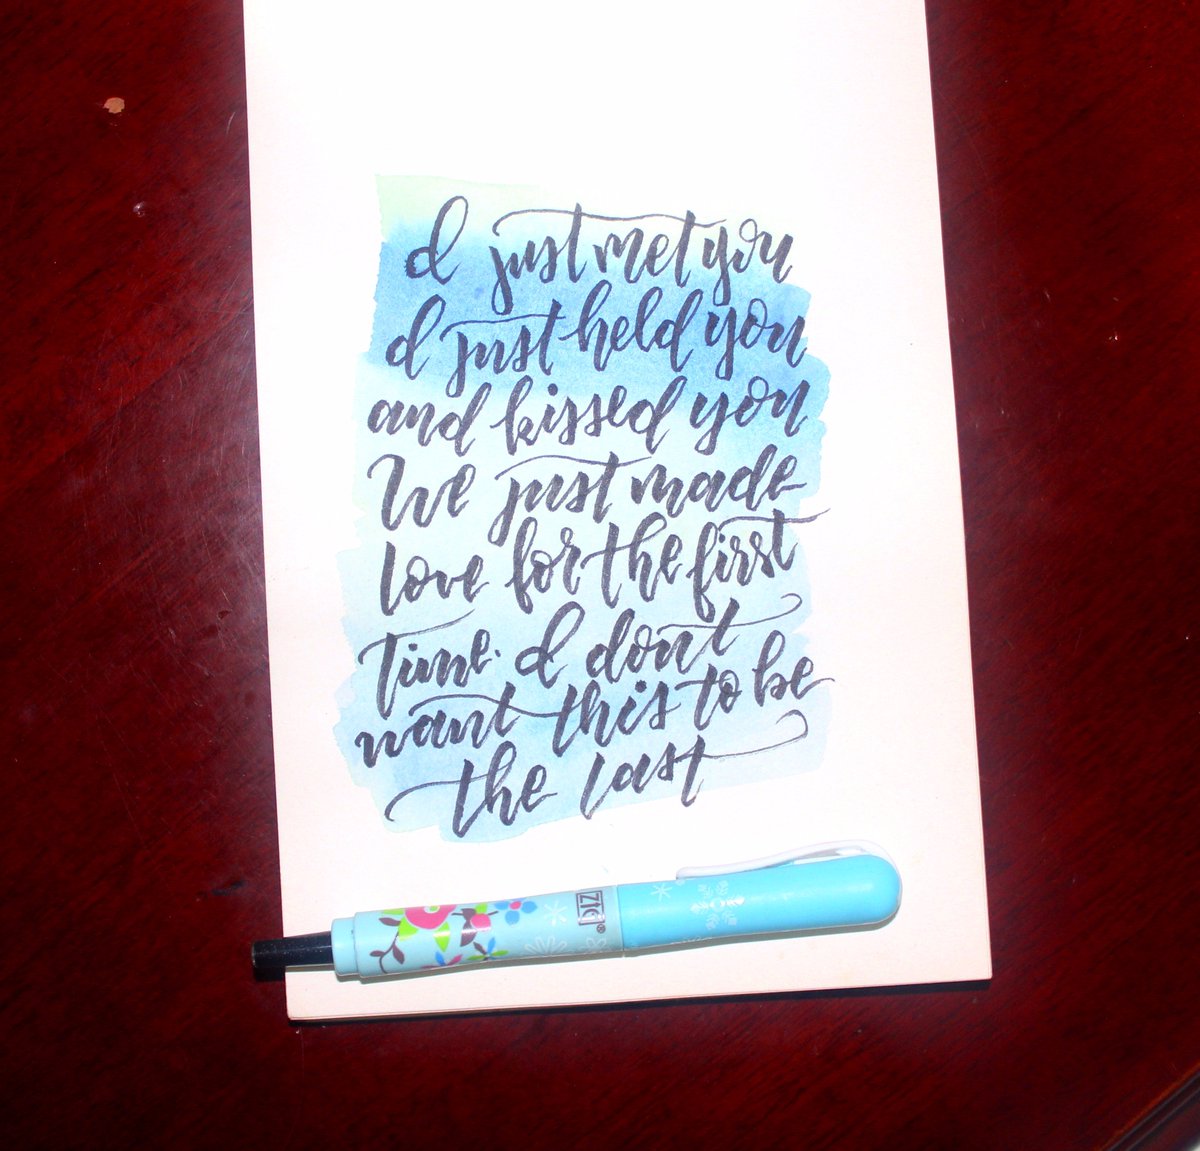 I just met you
I just held you
and kissed you
We just made
love for the first
Time. I dont
want this to be
the last
ZIG®